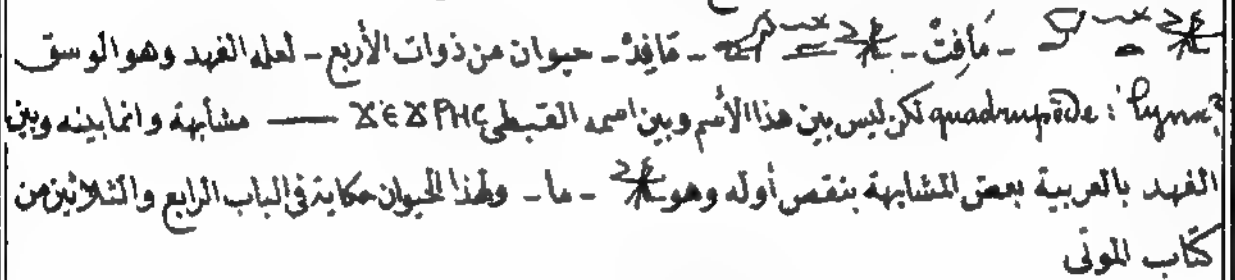 - مَافِتْ - - مَافِدْ - حيوان من ذوات الأربع - لعله الفهد وهو الوسق
quadrupède : lynx? لكن ليس بين هذا الأسم وبين اسمه القبطي — مشابهة وانما بينه وبين
الفهد بالعربية بعض المشابهة بنقص أوله وهو - ما - ولهذا الحيوان حكاية في الباب الرابع والثلاثين من
كتاب الموتى